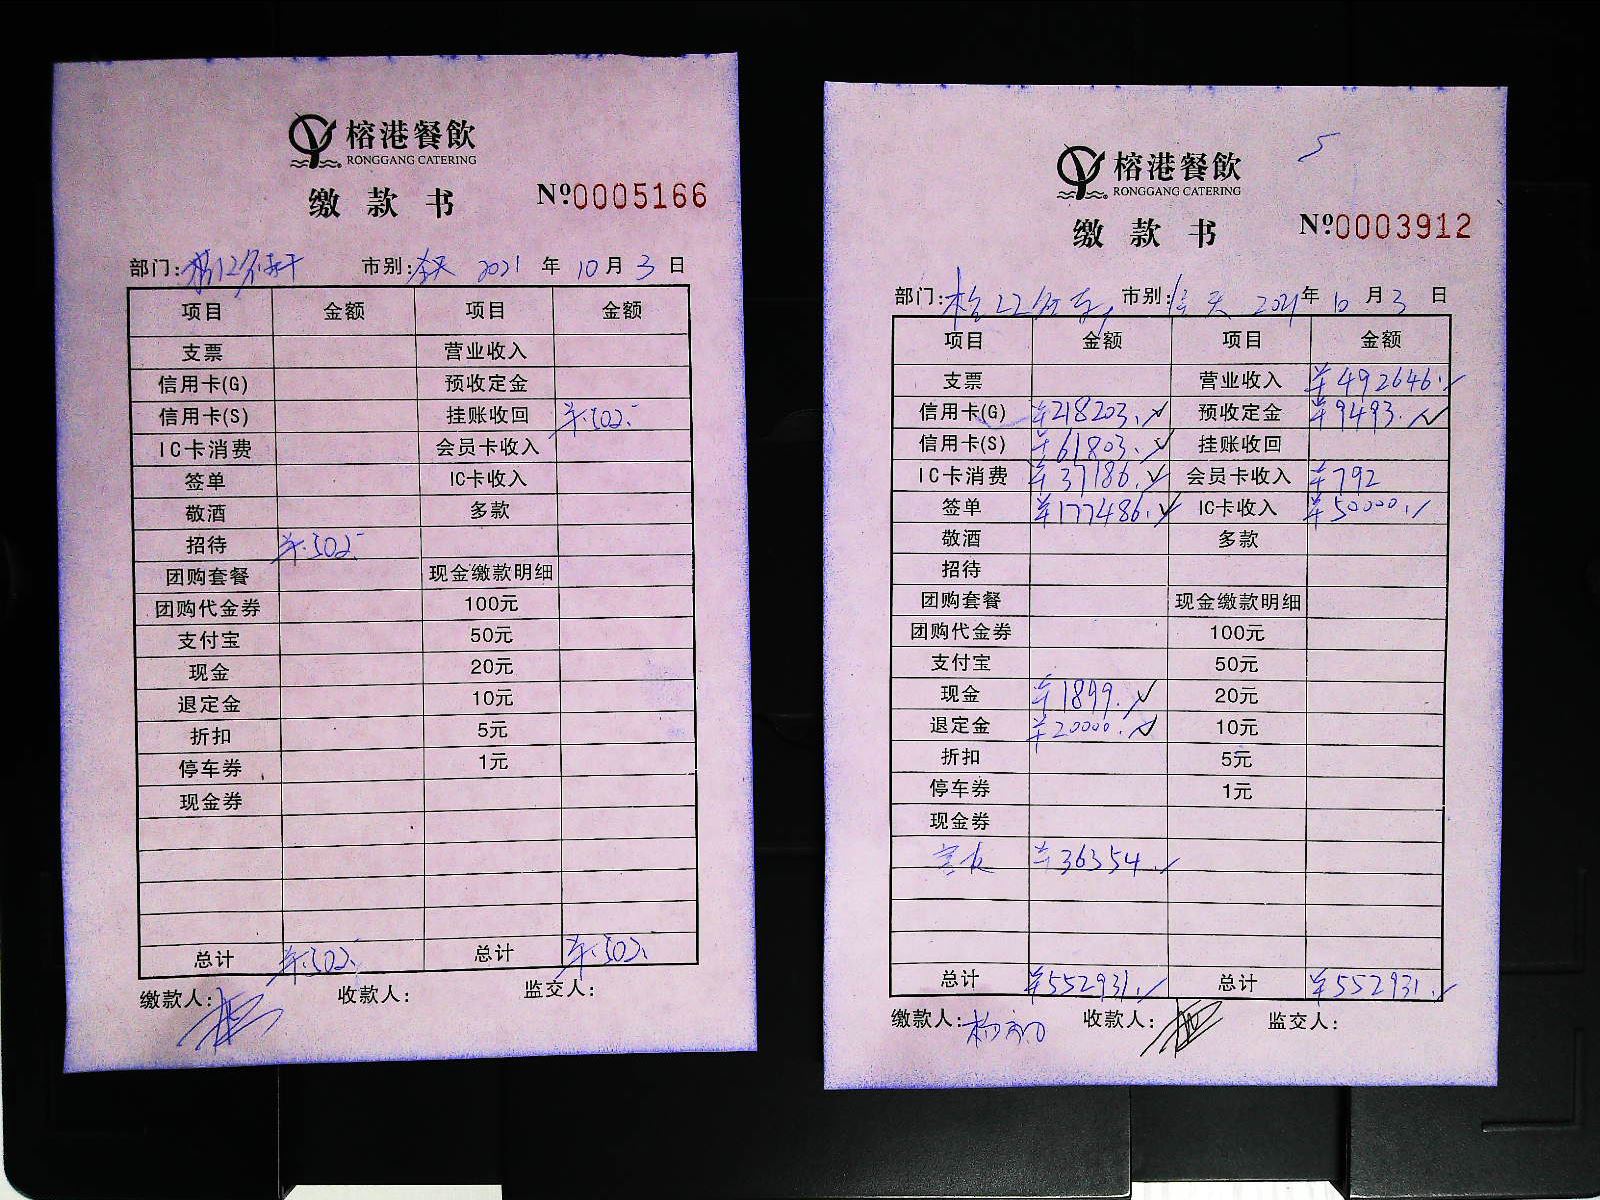 榕港餐飲
RONGGANG CATERING
缴款书
№0005166
部门: 市别:全天 2021年10月3日
项目 金额 项目 金额
支票 营业收入
信用卡(G) 预收定金
信用卡(S) 挂账收回 ¥502
IC卡消费 会员卡收入
签单 IC卡收入
敬酒 多款
招待 ¥502
团购套餐 现金缴款明细
团购代金券 100元
支付宝 50元
现金 20元
退定金 10元
折扣 5元
停车券 1元
现金券
总计 ¥502 总计 ¥502
缴款人: 收款人: 监交人:
5
榕港餐飲
RONGGANG CATERING
缴款书
№0003912
部门: 市别:全天 2021年10月3日
项目 金额 项目 金额
支票 营业收入 ¥492646.
信用卡(G) ¥218203. 预收定金 ¥9493.
信用卡(S) ¥61803. 挂账收回
IC卡消费 ¥37186. 会员卡收入 ¥792
签单 ¥177486. IC卡收入 ¥50000.
敬酒 多款
招待
团购套餐 现金缴款明细
团购代金券 100元
支付宝 50元
现金 ¥1899. 20元
退定金 ¥20000. 10元
折扣 5元
停车券 1元
现金券
¥36354.
总计 ¥552931. 总计 ¥552931.
缴款人: 收款人: 监交人: